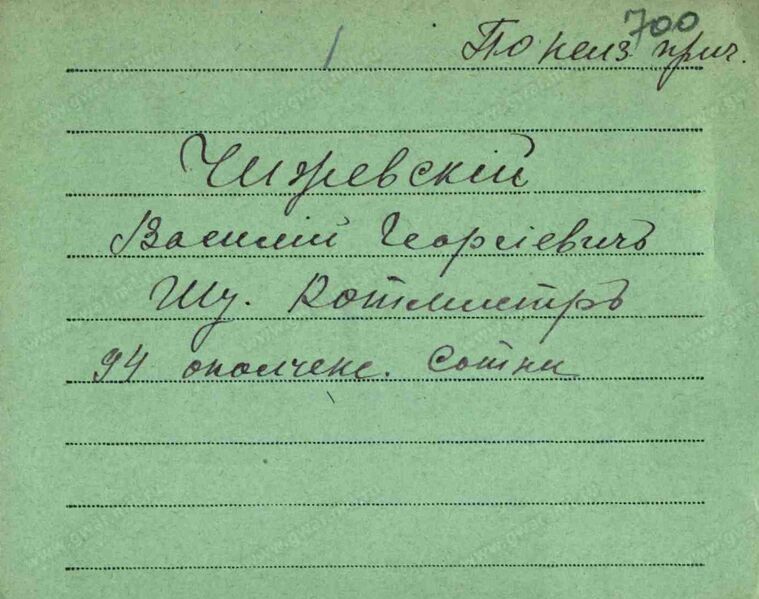 700
По неиз прич.
Чижевскій
Василій Георгіевичъ
Шт. Ротмистръ
94 ополченс. Сотни